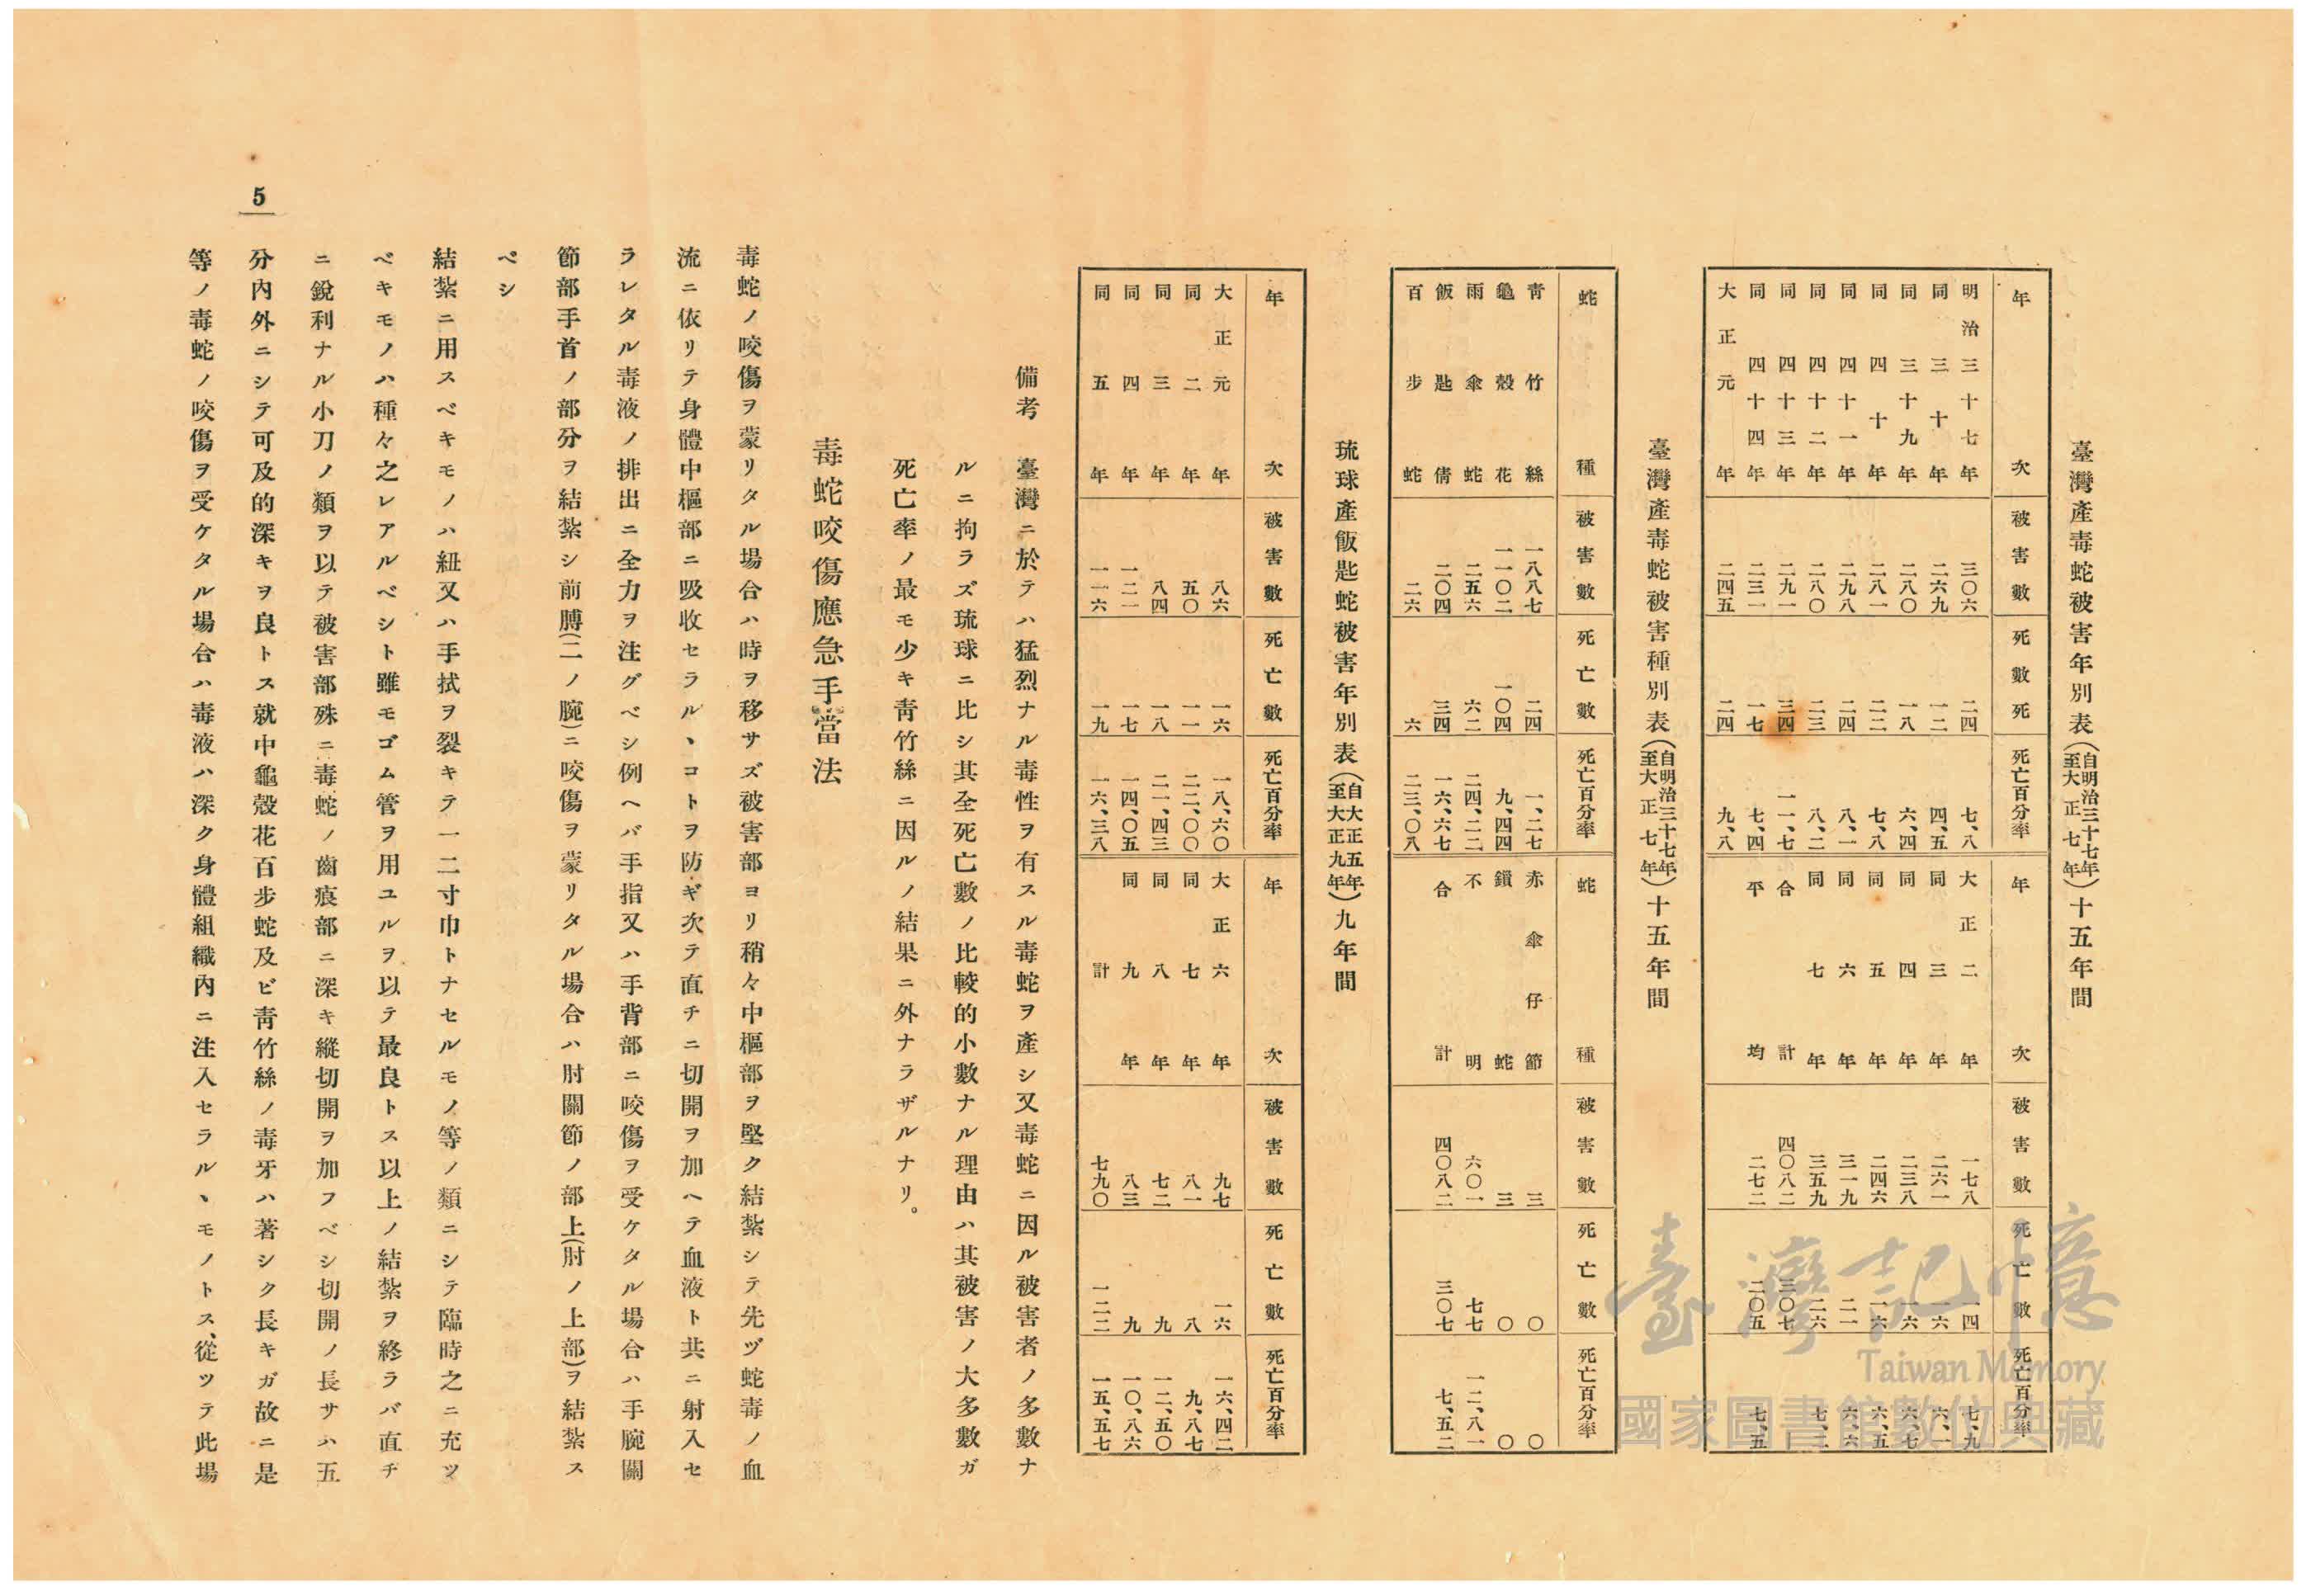 臺灣產毒蛇被害年別表(自明治三十七年至大正七年)十五年間
年次 被害數 死亡數 死亡百分率
明治三十七年 三〇六 二四 七、八
同三十年 二六九 一二 四、五
同三十九年 二八〇 一八 六、四
同四十年 二八一 二二 七、八
同四十一年 二九八 二四 八、一
同四十二年 二八〇 二三 八、二
同四十三年 二九一 三四 一一、七
同四十四年 二三一 一七 七、四
大正元年 二四五 二四 九、八
年次 被害數 死亡數 死亡百分率
大正二年 一七八 一四 七、九
同三年 二六一 一六 六、一
同四年 二三八 一六 六、七
同五年 二四六 一六 六、五
同六年 三一九 二一 六、六
同七年 三五九 二六 七、二
合計 四〇八二 三〇七
平均 二七二 二〇五 七、五
臺灣產毒蛇被害種別表(自明治三十七年至大正七年)十五年間
蛇種 被害數 死亡數 死亡百分率
青竹絲 一八八七 二四 一、二七
龜殼花 一一〇二 一〇四 九、四四
雨傘蛇 二五六 六二 二四、二二
飯匙倩 二〇四 三四 一六、六七
百步蛇 二六 六 二三、〇八
蛇種 被害數 死亡數 死亡百分率
赤傘仔節 三 〇 〇
鎖蛇 三 〇 〇
不明 六〇一 七七 一二、八一
合計 四〇八二 三〇七 七、五二
琉球產飯匙蛇被害年別表(自大正五年至大正九年)九年間
年次 被害數 死亡數 死亡百分率
大正元年 八六 一六 一八、六〇
同二年 五〇 一一 二二、〇〇
同三年 八四 一八 二一、四三
同四年 一二一 一七 一四、〇五
同五年 一一六 一九 一六、三八
年次 被害數 死亡數 死亡百分率
大正六年 九七 一六 一六、四二
同七年 八一 八 九、八七
同八年 七二 九 一二、五〇
同九年 八三 九 一〇、八六
計 七九〇 一二三 一五、五七
備考 臺灣ニ於テハ猛烈ナル毒性ヲ有スル毒蛇ヲ產シ又毒蛇ニ因ル被害者ノ多數ナ
ルニ拘ラズ琉球ニ比シ其全死亡數ノ比較的小數ナル理由ハ其被害ノ大多數ガ
死亡率ノ最モ少キ青竹絲ニ因ルノ結果ニ外ナラザルナリ。
毒蛇咬傷應急手當法
毒蛇ノ咬傷ヲ蒙リタル場合ハ時ヲ移サズ被害部ヨリ稍々中樞部ヲ堅ク結紮シテ先ヅ蛇毒ノ血
流ニ依リテ身體中樞部ニ吸收セラルヽコトヲ防ギ次テ直チニ切開ヲ加ヘテ血液ト共ニ射入セ
ラレタル毒液ノ排出ニ全力ヲ注グベシ例ヘバ手指又ハ手背部ニ咬傷ヲ受ケタル場合ハ手腕關
節部手首ノ部分ヲ結紮シ前膊(二ノ腕)ニ咬傷ヲ蒙リタル場合ハ肘關節ノ部上(肘ノ上部)ヲ結紮ス
ベシ
結紮ニ用スベキモノハ紐又ハ手拭ヲ裂キテ一二寸巾トナセルモノ等ノ類ニシテ臨時之ニ充ツ
ベキモノハ種々之レアルベシト雖モゴム管ヲ用ユルヲ以テ最良トス以上ノ結紮ヲ終ラバ直チ
ニ銳利ナル小刀ノ類ヲ以テ被害部殊ニ毒蛇ノ齒痕部ニ深キ縱切開ヲ加フベシ切開ノ長サハ五
分內外ニシテ可及的深キヲ良トス就中龜殼花百步蛇及ビ青竹絲ノ毒牙ハ著シク長キガ故ニ是
等ノ毒蛇ノ咬傷ヲ受ケタル場合ハ毒液ハ深ク身體組織內ニ注入セラルヽモノトス、從ツテ此場
5
臺灣記憶
Taiwan Memory
國家圖書館數位典藏